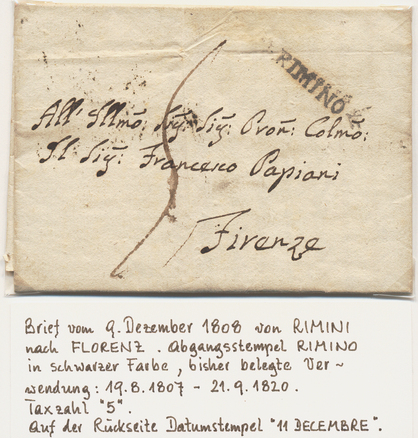 RIMINO
All' Illmo: Sig: Sig: Pron: Colmo:
Il Sig: Francesco Papiani
5
Firenze
Brief vom 9. Dezember 1808 von RIMINI
nach FLORENZ. Abgangsstempel RIMINO
in schwarzer Farbe, bisher belegte Ver ~
wendung: 19.8.1807 - 21.9.1820.
Taxzahl "5".
Auf der Rückseite Datumstempel "11 DECEMBRE".